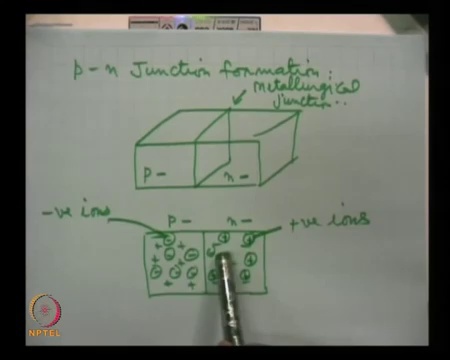 p-n Junction formation:
metallurgical
junction..
p- n-
-ve ions p- n- +ve ions
NPTEL